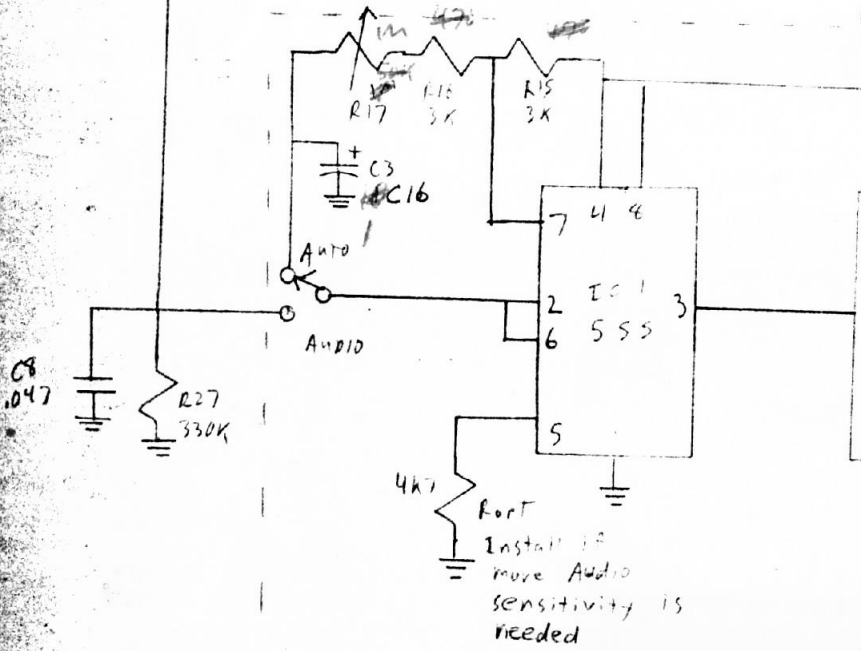 1M 470
R17
R16
3K
R15
3K
+
C3
C16
Auto
AUDIO
7
4
8
2
6
5
3
IC1
555
C8
.047
R27
330K
4K7
Ropt
Install if
more Audio
sensitivity is
needed